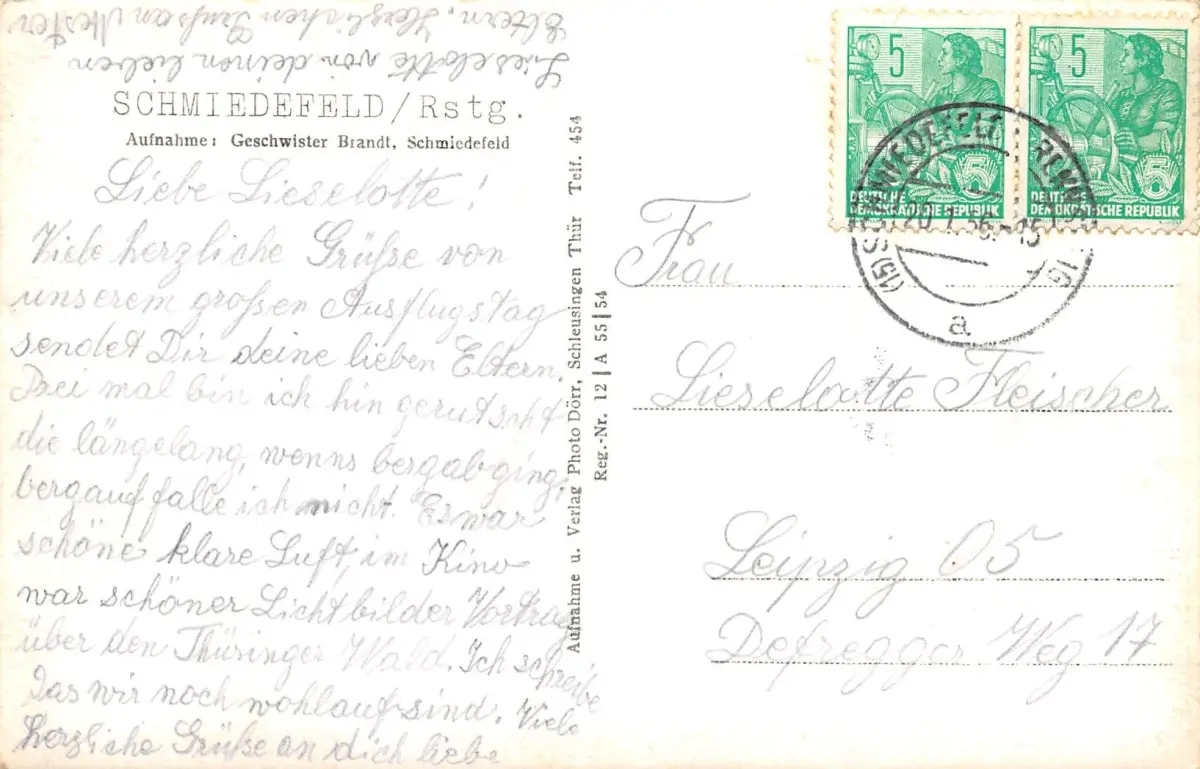 SCHMIEDEFELD/Rstg.
Aufnahme: Geschwister Brandt, Schmiedefeld
Liebe Lieselotte!
Viele herzliche Grüße von
unserem großen Ausflugstag
senden Dir deine lieben Eltern.
Drei mal bin ich hin gerutscht
die längelang, wenns bergab ging,
bergauf falle ich nicht. Es war
schöne klare Luft, im Kino
war schöner Lichtbilder Vortrag
über den Thüringer Wald. Ich schreibe
Das wir noch wohlauf sind. Viele
herzliche Grüße an dich liebe
Lieselotte von deinen lieben
Eltern. Herzlichen Gruß an
Aufnahme u. Verlag Photo Dörr, Schleusingen Thür Telf. 454
Reg.-Nr. 12 | A 55 | 54
5
DEUTSCHE
DEMOKRATISCHE REPUBLIK
5
DEUTSCHE
DEMOKRATISCHE REPUBLIK
(15) SCHMIEDEFELD
20.1.56.-15
a
Frau
Lieselotte Fleischer
Leipzig O5
Defregger Weg 17